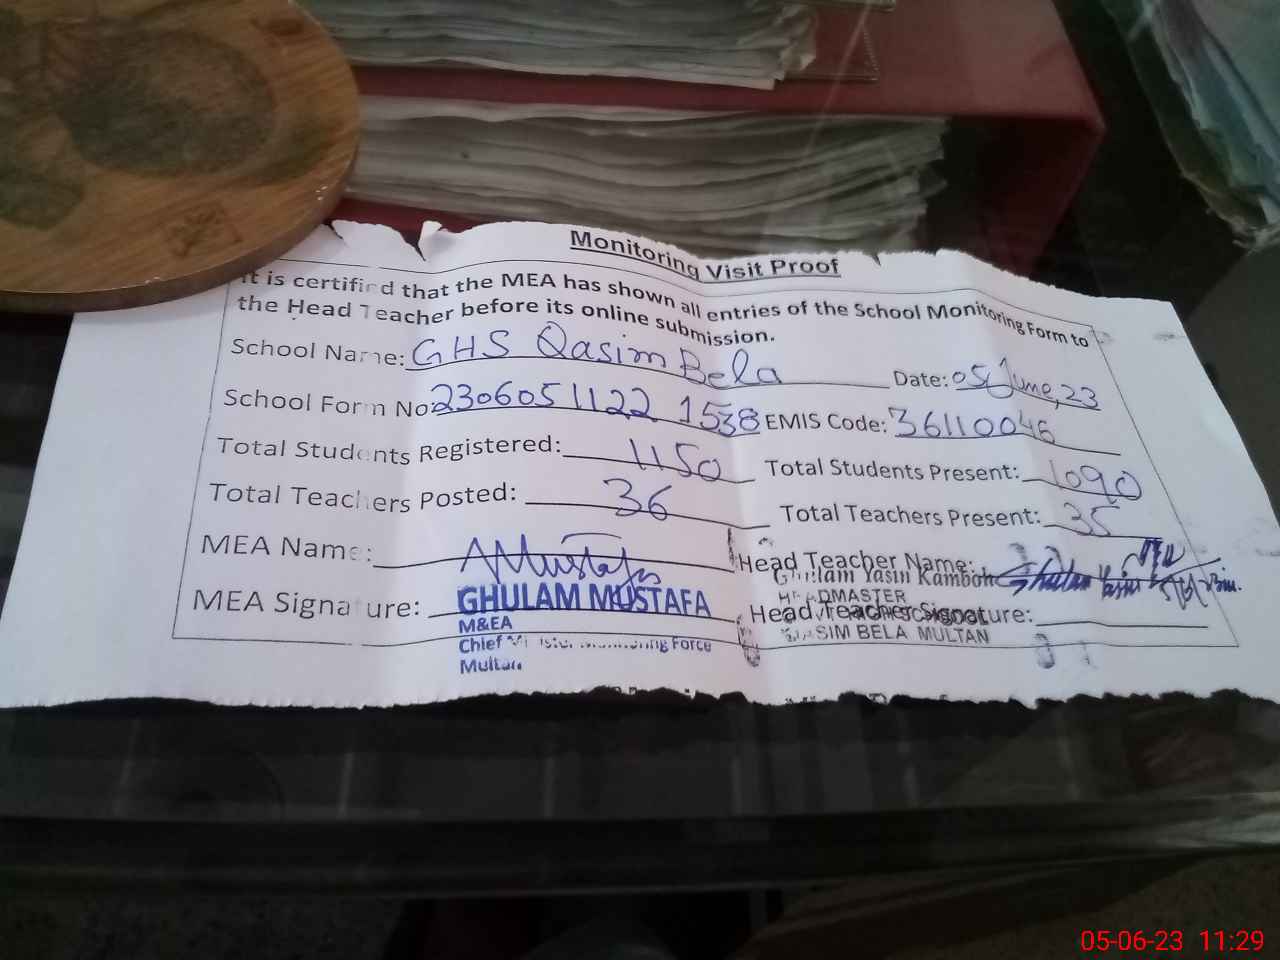 Monitoring Visit Proof
It is certified that the MEA has shown all entries of the School Monitoring Form to
the Head Teacher before its online submission.
School Name: GHS Qasim Bela Date: 05 June, 23
School Form No: 2306051122 1538 EMIS Code: 36110046
Total Students Registered: 1150 Total Students Present: 1090
Total Teachers Posted: 36 Total Teachers Present: 35
MEA Name: Head Teacher Name:
Ghulam Yasin Kamboh
HEADMASTER
MEA Signature: GHULAM MUSTAFA Head Teacher Signature:
M&EA QASIM BELA MULTAN
Chief Minister Monitoring Force
Multan
05-06-23 11:29